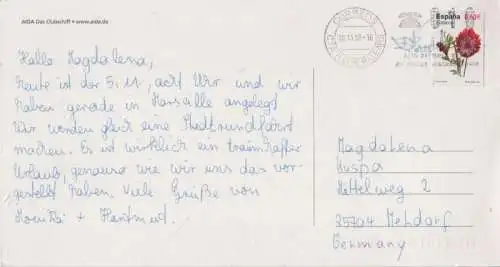 AIDA Das Clubschiff • www.aida.de
España
0,60€
Hallo Magdalena,
heute ist der 5.11, acht Uhr und wir
haben gerade in Marsaille angelegt
Wir werden gleich eine Stadtrundfahrt
machen. Es ist wirklich ein traumhafter
Urlaub, genauso wie wir uns das vor-
gestellt haben. Viele Grüße von
+ Hartmut.
Magdalena
Kuspa
Hettelweg 2
25704 Meldorf
Germany